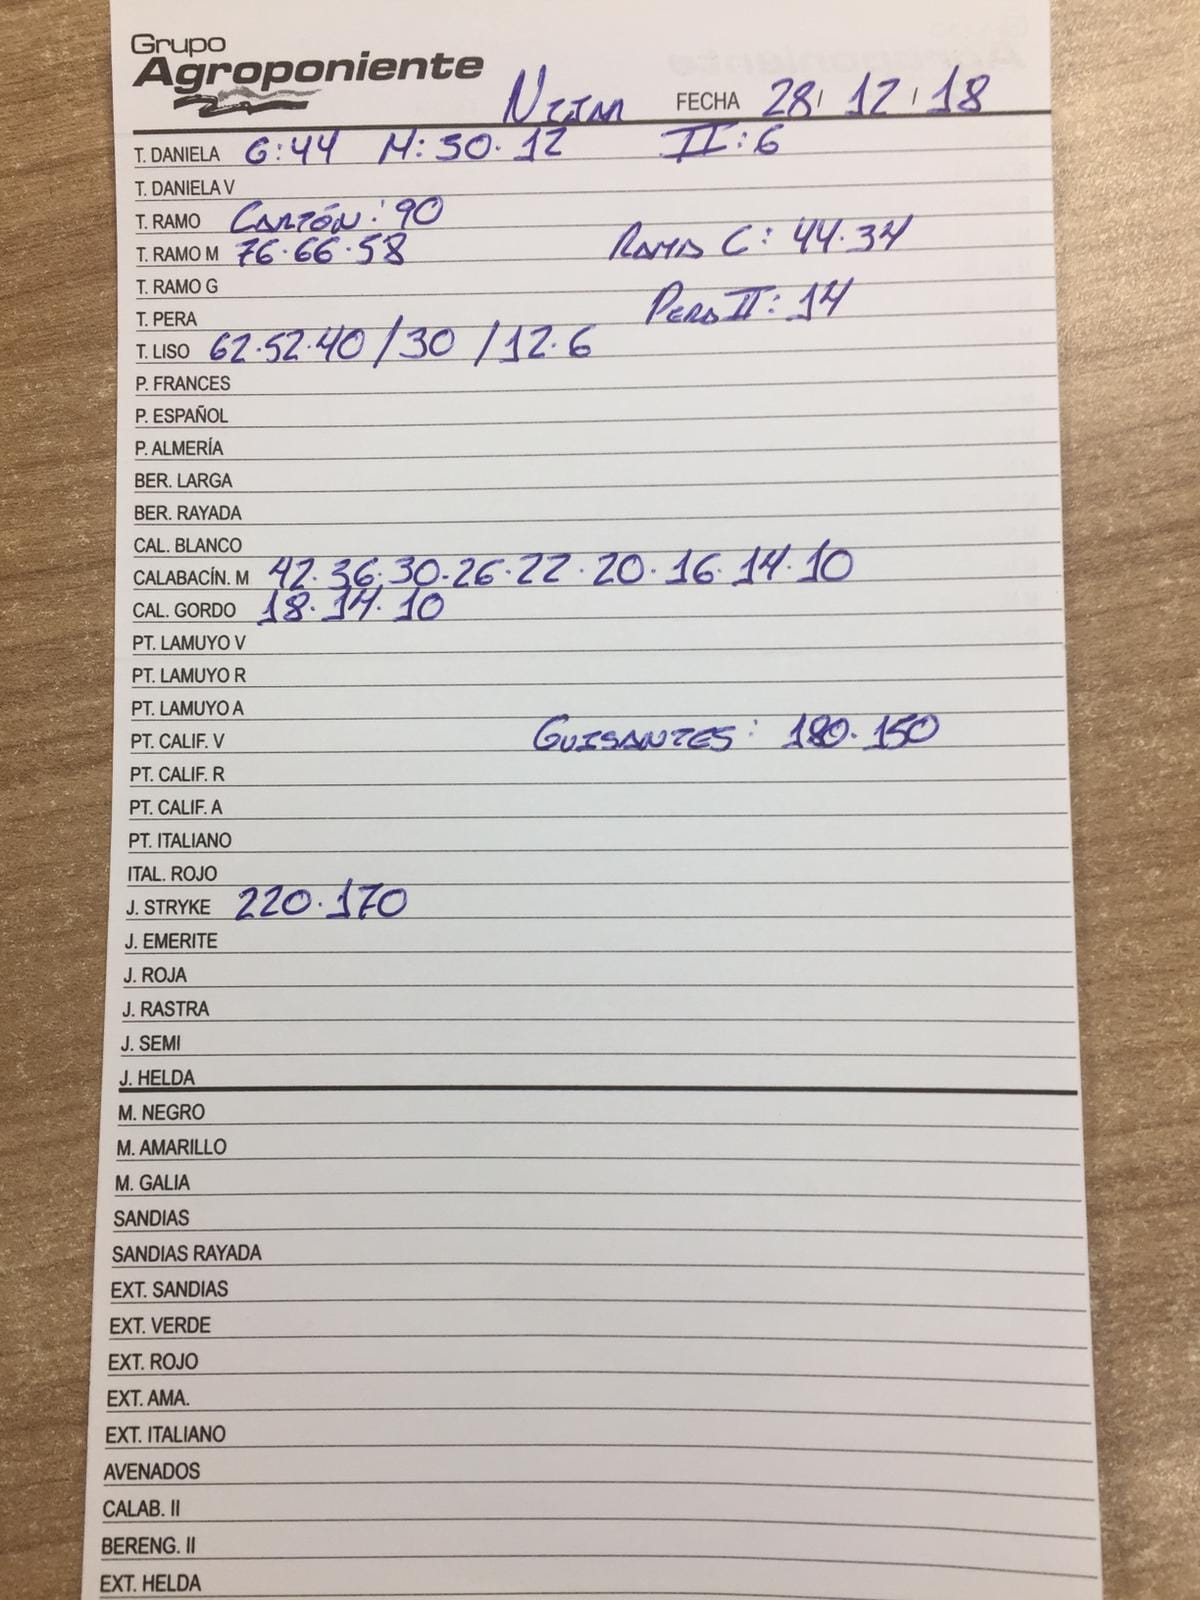 Grupo
Agroponiente
NIJAR FECHA 28/ 12 / 18
T. DANELA G:44 M:30.12 II:6
T. DANIELA V
T. RAMO CARTÓN: 90
T. RAMO M 76.66.58 RAMA C: 44.34
T. RAMO G
T. PERA PERA II: 14
T. LISO 62.52.40 /30 /12.6
P. FRANCES
P. ESPAÑOL
P. ALMERÍA
BER. LARGA
BER. RAYADA
CAL. BLANCO
CALABACÍN. M 42.36.30.26.22.20.16.14.10
CAL. GORDO 18.14.10
PT. LAMUYO V
PT. LAMUYO R
PT. LAMUYO A
PT. CALIF. V GUISANTES: 180.150
PT. CALIF. R
PT. CALIF. A
PT. ITALIANO
ITAL. ROJO
J. STRYKE 220.170
J. EMERITE
J. ROJA
J. RASTRA
J. SEMI
J. HELDA
M. NEGRO
M. AMARILLO
M. GALIA
SANDIAS
SANDIAS RAYADA
EXT. SANDIAS
EXT. VERDE
EXT. ROJO
EXT. AMA.
EXT. ITALIANO
AVENADOS
CALAB. II
BERENG. II
EXT. HELDA